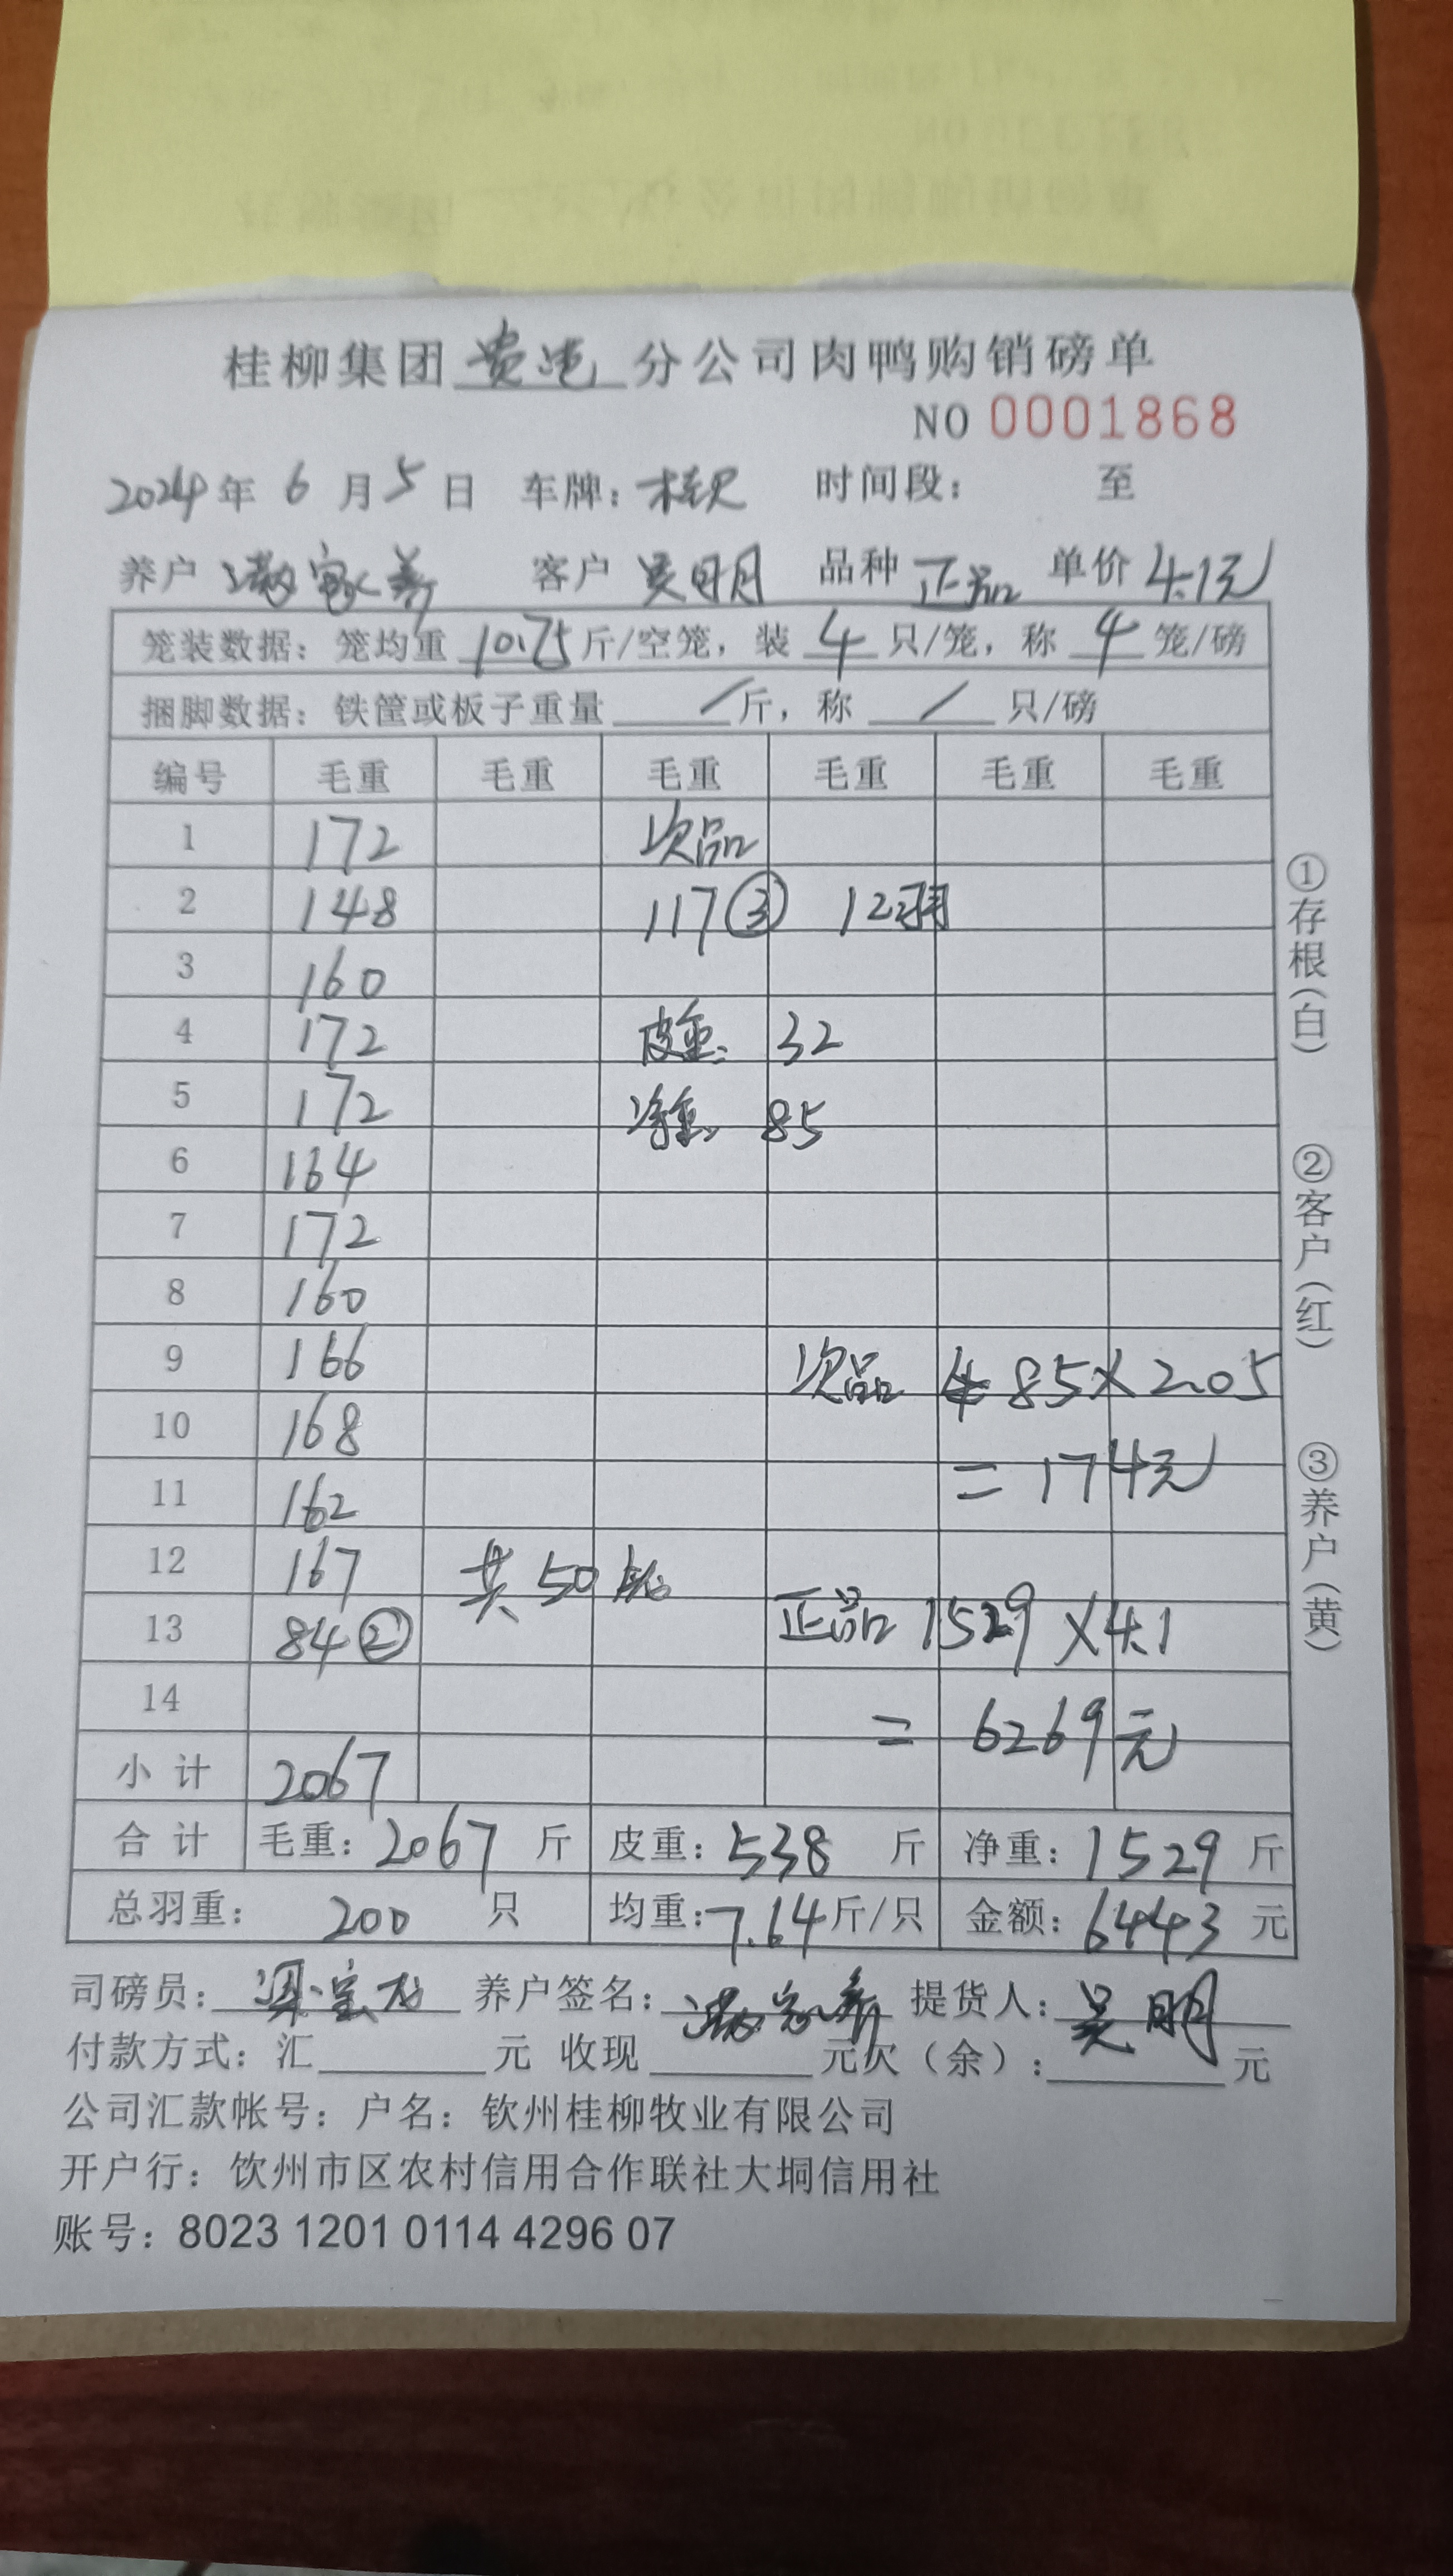 桂柳集团贵港分公司肉鸭购销磅单
NO 0001868
2024年 6 月 5 日 车牌： 时间段： 至
养户 家养 客户 吴明 品种 正品 单价 4.1元
笼装数据：笼均重 10.75 斤/空笼，装 4 只/笼，称 4 笼/磅
捆脚数据：铁筐或板子重量 / 斤，称 / 只/磅
编号 毛重 毛重 毛重 毛重 毛重 毛重
1 172 次品
2 148 117③ 12羽
3 160
4 172 皮重: 32
5 172 净重: 85
6 164
7 172
8 160
9 166 次品 85×2.05
10 168
=174元
11 162
12 167 共50笼
13 84② 正品 1529×4.1
14
=6269元
小计 2067
合计 毛重：2067 斤 皮重：538 斤 净重：1529 斤
总羽重： 200 只 均重：7.64斤/只 金额：6443 元
司磅员： 养户签名： 提货人：吴明
付款方式：汇 元 收现 元欠（余）： 元
公司汇款帐号：户名：钦州桂柳牧业有限公司
开户行：饮州市区农村信用合作联社大垌信用社
账号：8023 1201 0114 4296 07
①存根（白）
②客户（红）
③养户（黄）